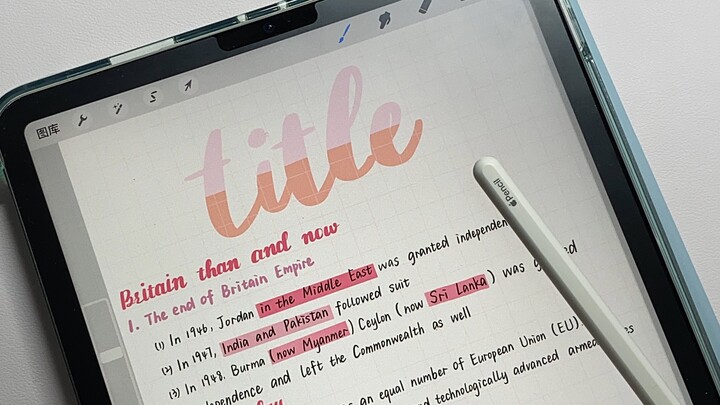 图库
title
Pencil
Britain than and now
1. The end of Britain Empire
(1) In 1946, Jordan in the Middle East was granted independen
(2) In 1947, India and Pakistan followed suit
(3) In 1948. Burma (now Myanmer) Ceylon (now Sri Lanka) was g
dependence and left the Commonwealth as well
an equal number of European Union (EU).
technologically advanced armed